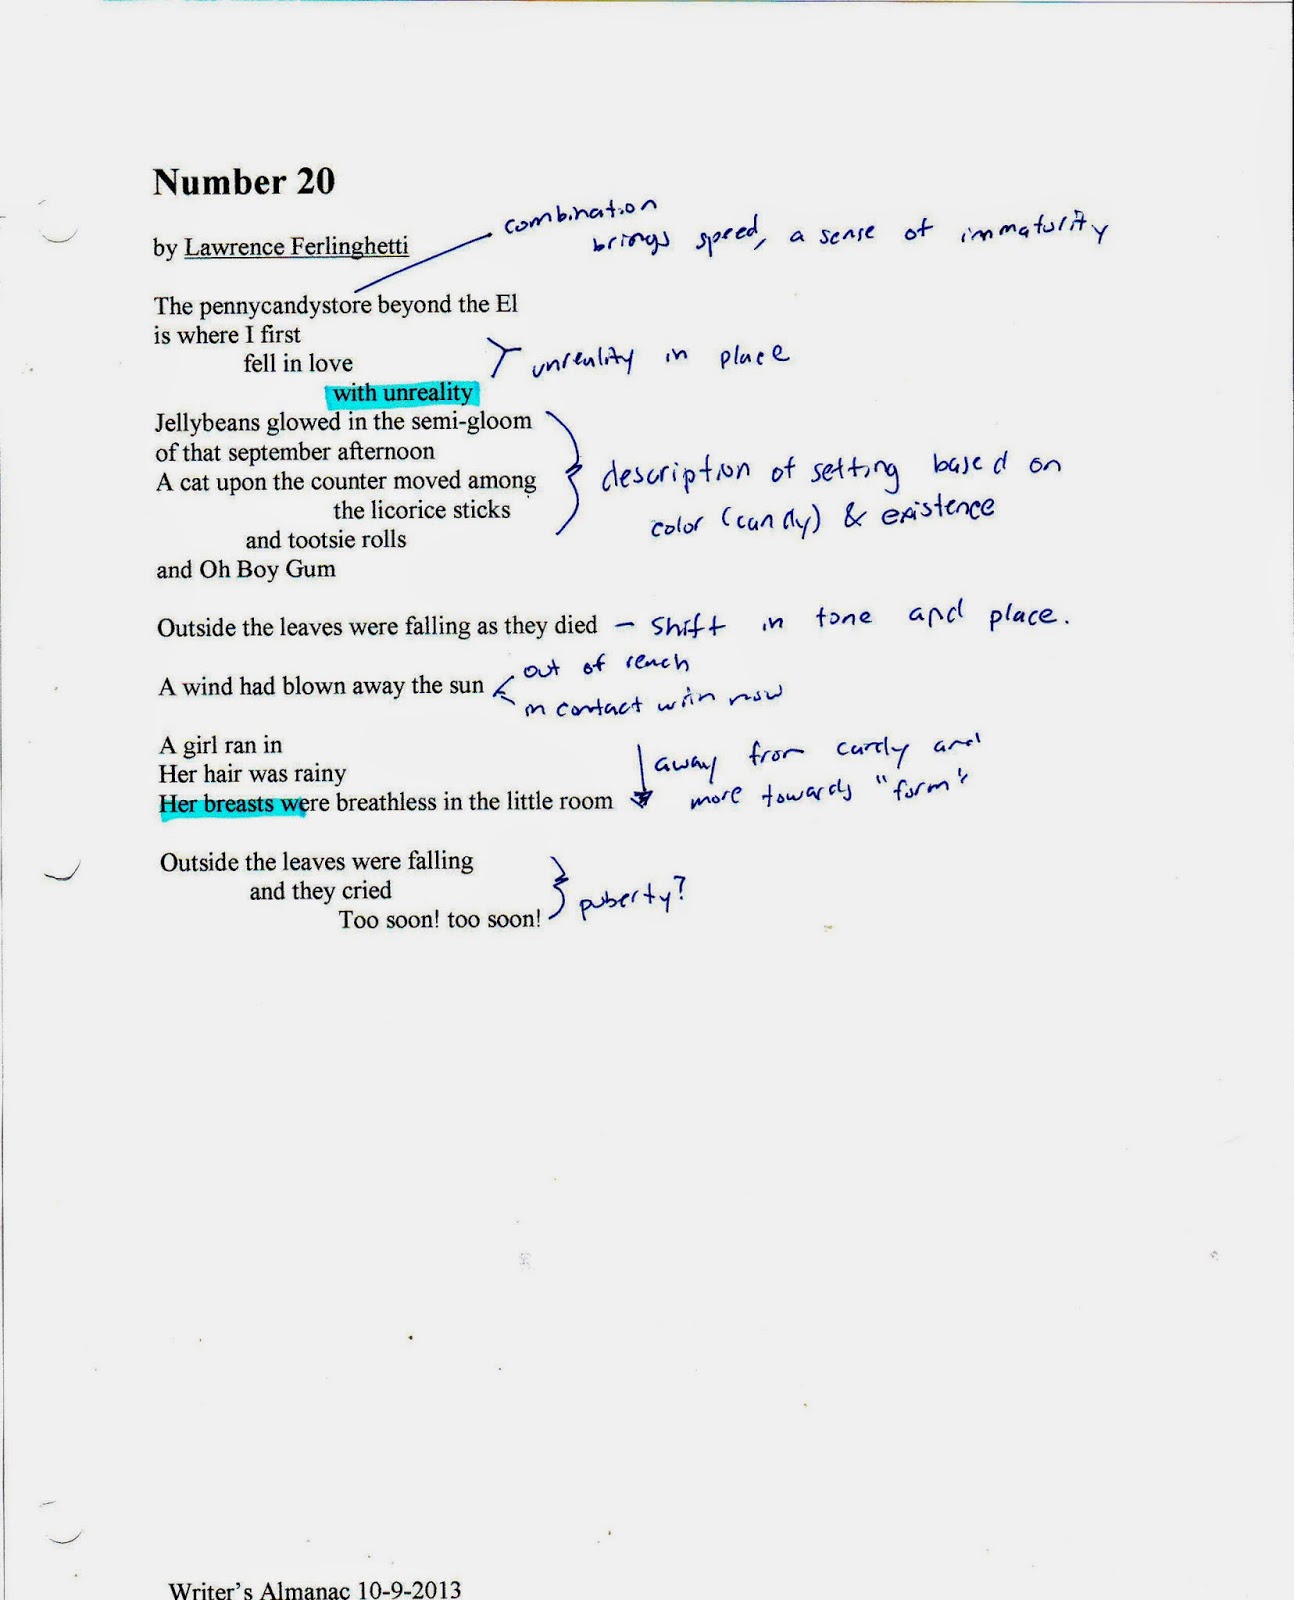 Number 20
combination
brings speed, a sense of immaturity
by Lawrence Ferlinghetti
The pennycandystore beyond the El
is where I first
fell in love
unreality in place
with unreality
Jellybeans glowed in the semi-gloom
of that september afternoon
A cat upon the counter moved among
description of setting based on
the licorice sticks
color (candy) & existence
and tootsie rolls
and Oh Boy Gum
Outside the leaves were falling as they died – shift in tone and place.
out of reach
A wind had blown away the sun
in contact with now
A girl ran in
away from candy and
Her hair was rainy
more towards "form"
Her breasts were breathless in the little room
Outside the leaves were falling
and they cried
puberty?
Too soon! too soon!
Writer's Almanac 10-9-2013